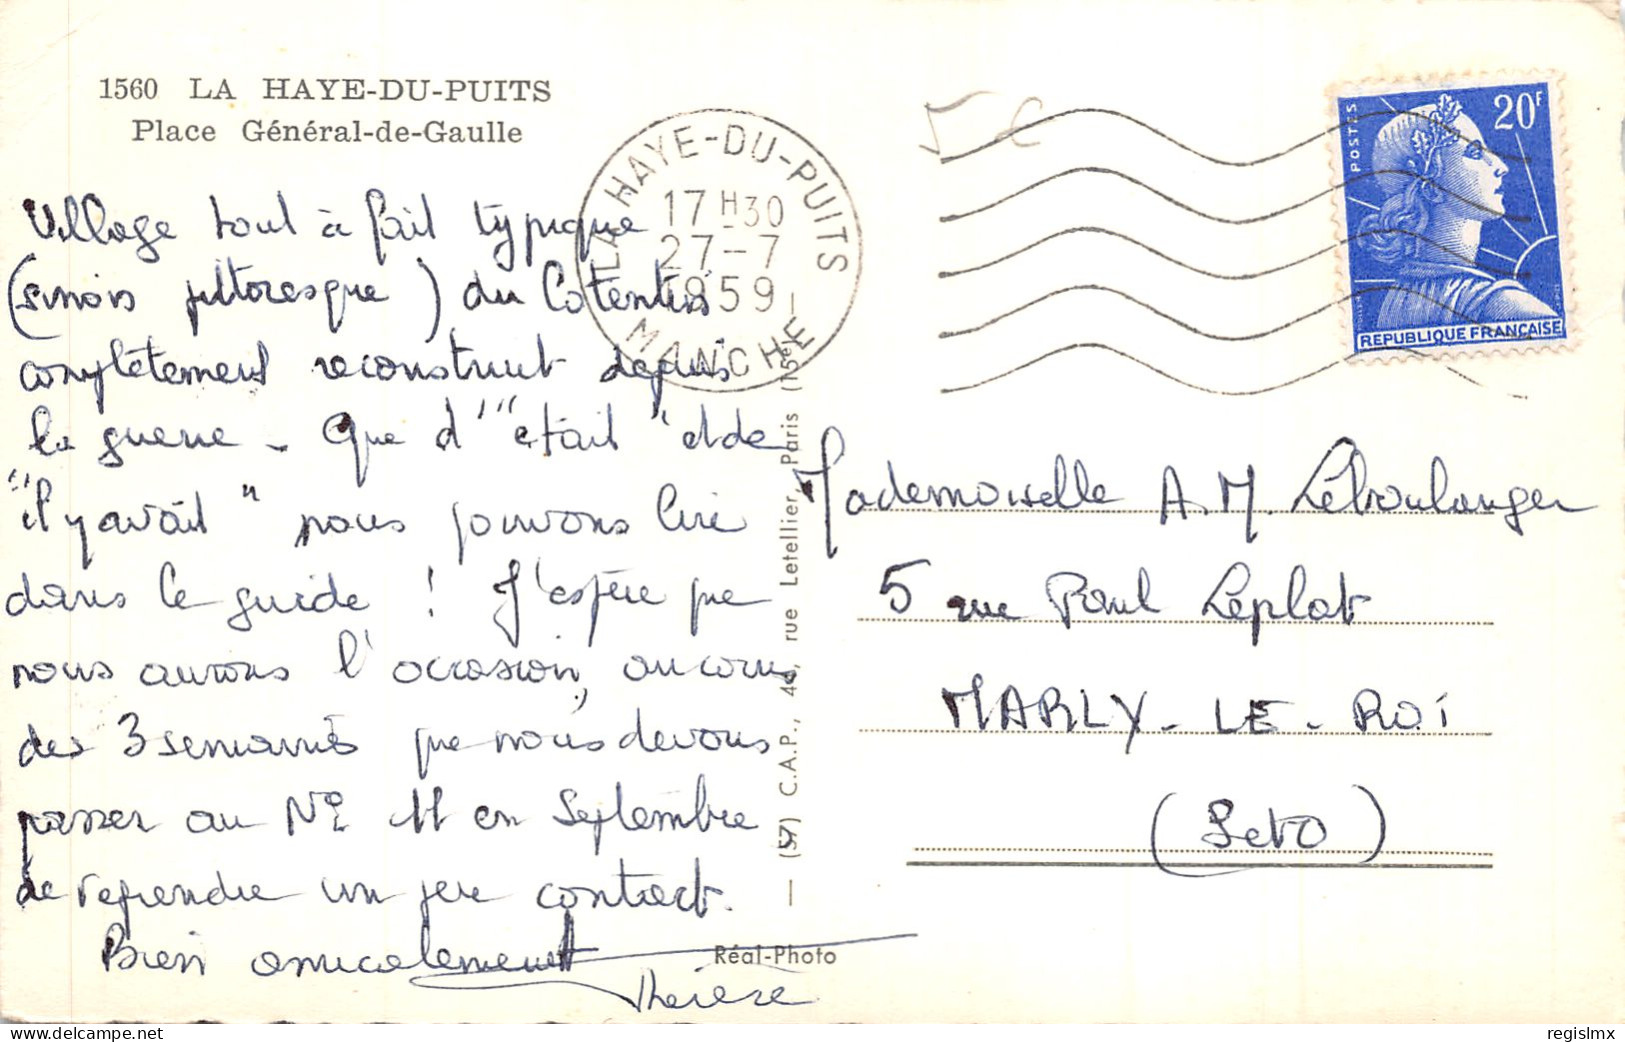 1560 LA HAYE-DU-PUITS
Place Général-de-Gaulle
Village tout à fait typique
(sinon pittoresque) du Cotentin
complètement reconstruit depuis
la guerre - Que d'"était" et de
"il y avait" nous pouvons lire
dans le guide ! J'espère que
nous aurons l'occasion, au cours
des 3 semaines que nous devons
passer au N° 11 en Septembre
de reprendre un peu contact.
Bien amicalement
Thérèse
LA HAYE-DU-PUITS
17 H 30
27-7
1959
MANCHE
5 €
20F
POSTES
REPUBLIQUE FRANÇAISE
(57) C.A.P., 44, rue Letellier, Paris (15e)
Réal-Photo
Mademoiselle A.M. Leboulanger
5 rue Paul Leplat
MARLY-LE-ROI
(S et O)
delcampe.net
regislmx